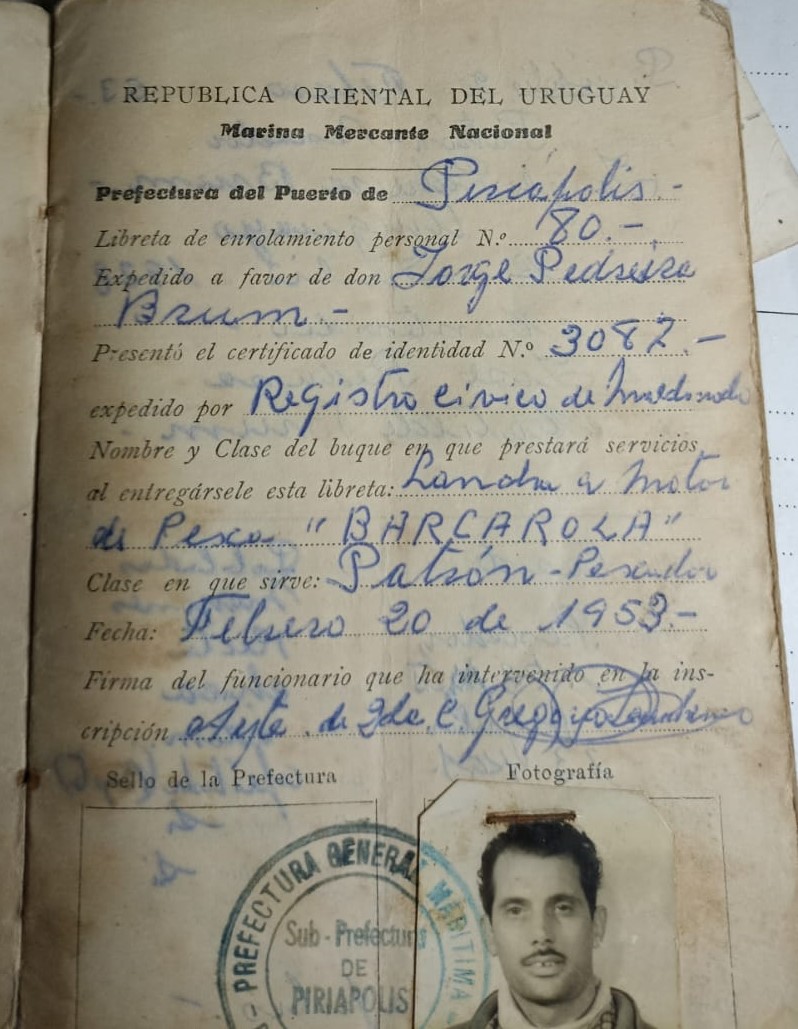 REPUBLICA ORIENTAL DEL URUGUAY
Marina Mercante Nacional
Prefectura del Puerto de Piriapolis.-
Libreta de enrolamiento personal N.º 80.-
Expedido a favor de don Jorge Pedreira
Brum.-
Presentó el certificado de identidad N.º 3087.-
expedido por Registro cívico de Maldonado
Nombre y Clase del buque en que prestará servicios
al entregársele esta libreta: Lancha a Motor
de Pesca "BARCAROLA"
Clase en que sirve: Patrón-Pescador
Fecha: Febrero 20 de 1953.-
Firma del funcionario que ha intervenido en la ins-
cripción Ayte. de 2da. C. Gregorio
Sello de la Prefectura
Fotografía
PREFECTURA GENERAL MARITIMA
Sub-Prefectura
DE
PIRIAPOLIS